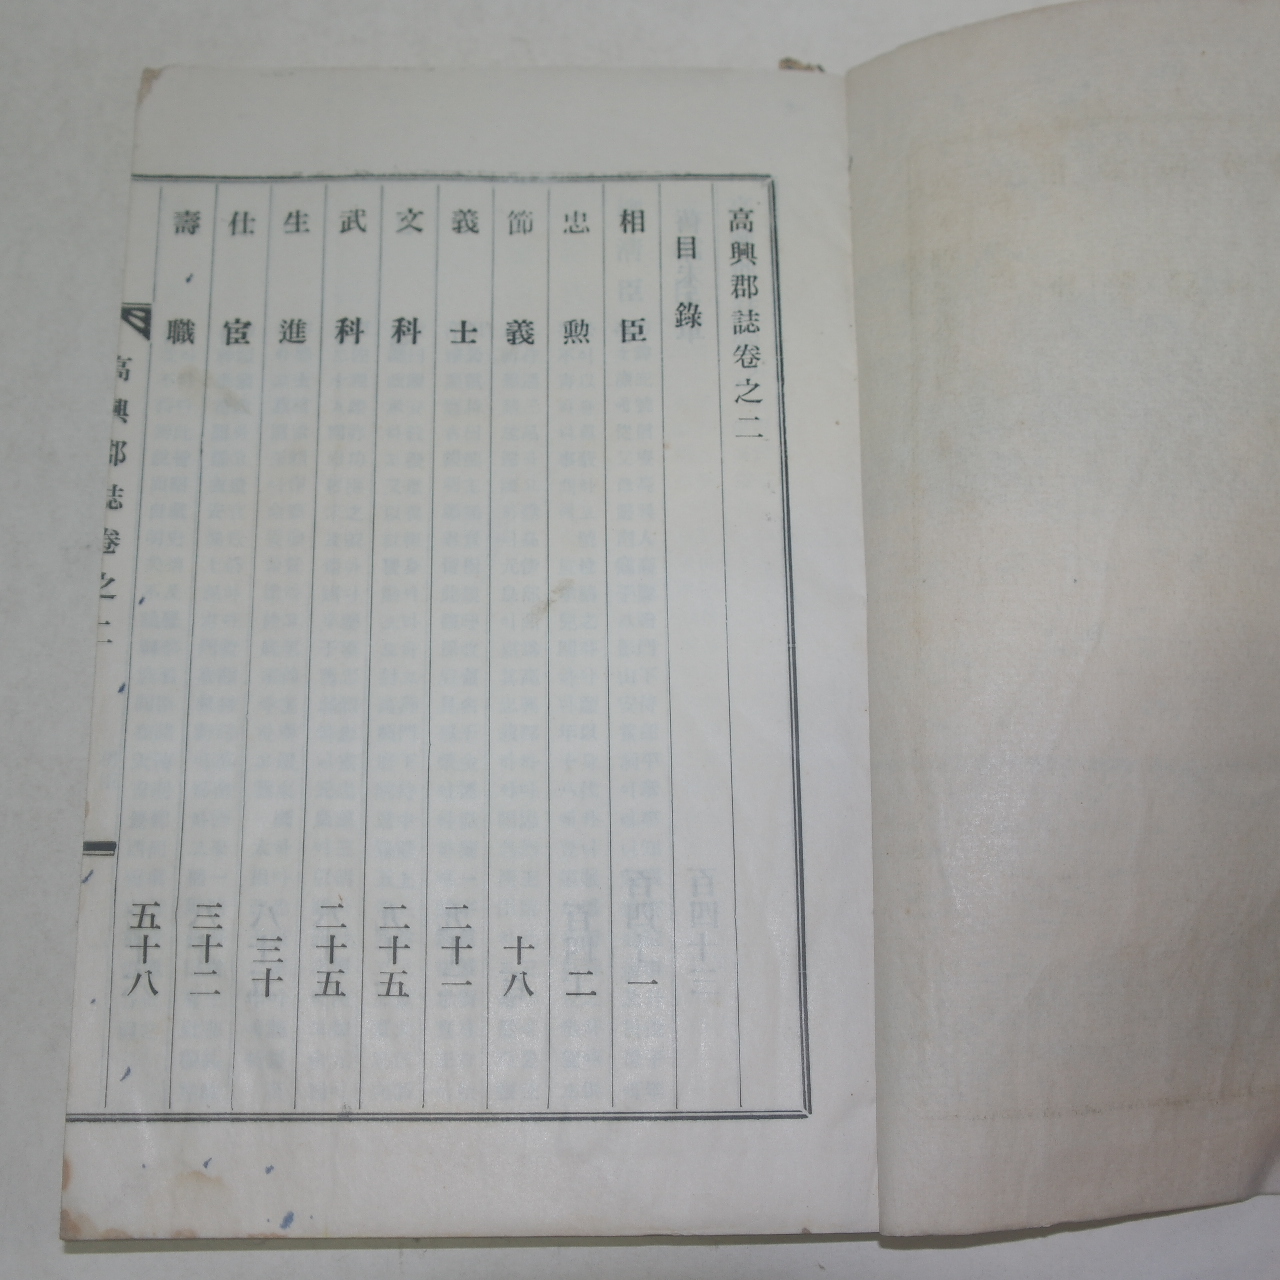 高興郡誌卷之二
目錄
相臣 一
忠勳 二
節義 十八
義士 二十一
文科 二十五
武科 二十五
生進 三十
仕宦 三十二
壽職 五十八
高興郡誌卷之二